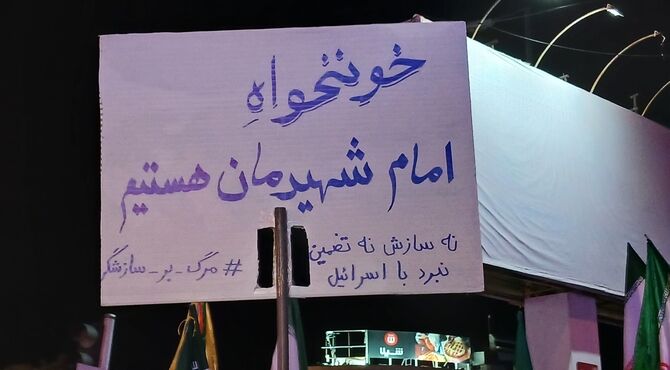 خونخواهِ
امام شهیدمان هستیم
نه سازش نه تضمین
نبرد با اسرائیل
#مرگ_بر_سازشگر
شیلا